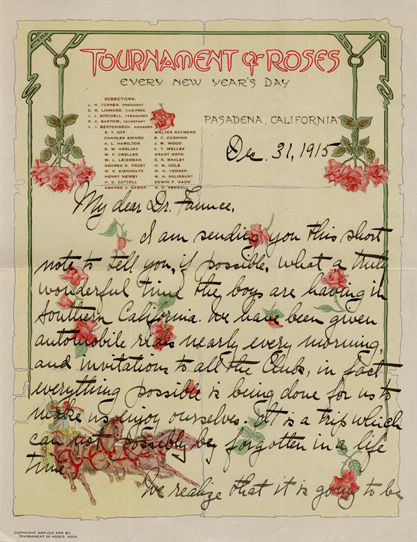 TOURNAMENT OF ROSES
EVERY NEW YEAR'S DAY
DIRECTORS:
L. H. TURNER, PRESIDENT
D. M. LINNARD, VICE-PRES.
J. J. MITCHELL, TREASURER
A. J. BERTONNEAU, MANAGER
E. T. OFF WALTER RAYMOND
CHARLES GAINES B. F.
A. L. HAMILTON J. W. WOOD
D. W. HERLIHY A. T. WELLES
F. F. CRELLER GRANT ORTH
W. L. LEISHMAN E. K. BEALEY
GEORGE H. FROST H. M. COLE
W. S. KIENHOLTZ W. H. VEDDER
HENRY NEWBY W. H. SALISBURY
EDWIN F. HAHN
C. KENDALL
PASADENA, CALIFORNIA
Dec. 31, 1915
My dear Dr. Faunce,
I am sending you this short
note to tell you, if possible, what a truly
wonderful time the boys are having in
Southern California. We have been given
automobile rides nearly every morning,
and invitations to all the Clubs, in fact
everything possible is being done for us to
make us enjoy ourselves. It is a trip which
can not possibly be forgotten in a life
time.
We realize that it is going to be
COPYRIGHT APPLIED FOR BY
TOURNAMENT OF ROSES ASSN